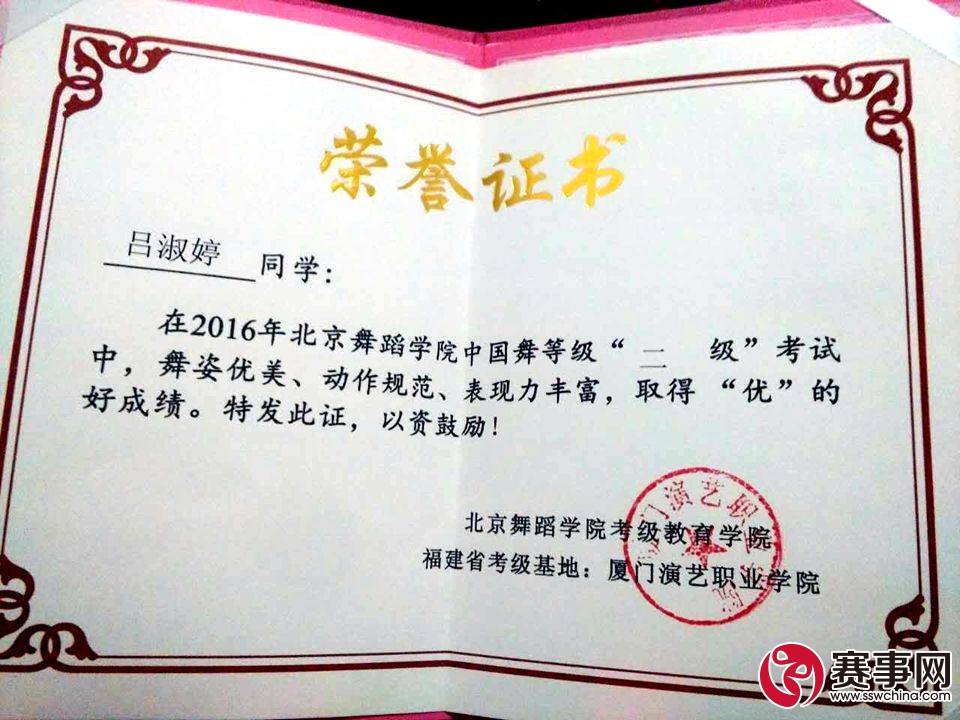 荣誉证书
吕淑婷 同学：
在2016年北京舞蹈学院中国舞等级“二 级”考试
中，舞姿优美、动作规范、表现力丰富，取得“优”的
好成绩。特发此证，以资鼓励！
北京舞蹈学院考级教育学院
福建省考级基地：厦门演艺职业学院
厦门演艺职业学院
赛事网
www.sswchina.com